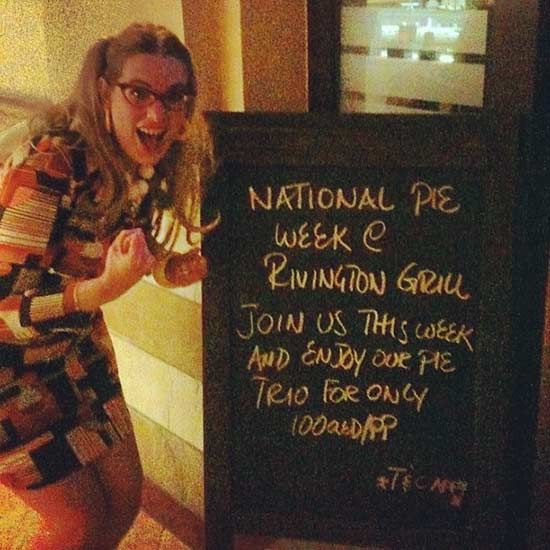 NATIONAL PIE
WEEK @
RIVINGTON GRILL
JOIN US THIS WEEK
AND ENJOY OUR PIE
TRIO FOR ONLY
100AED/PP
*T&C APPLY